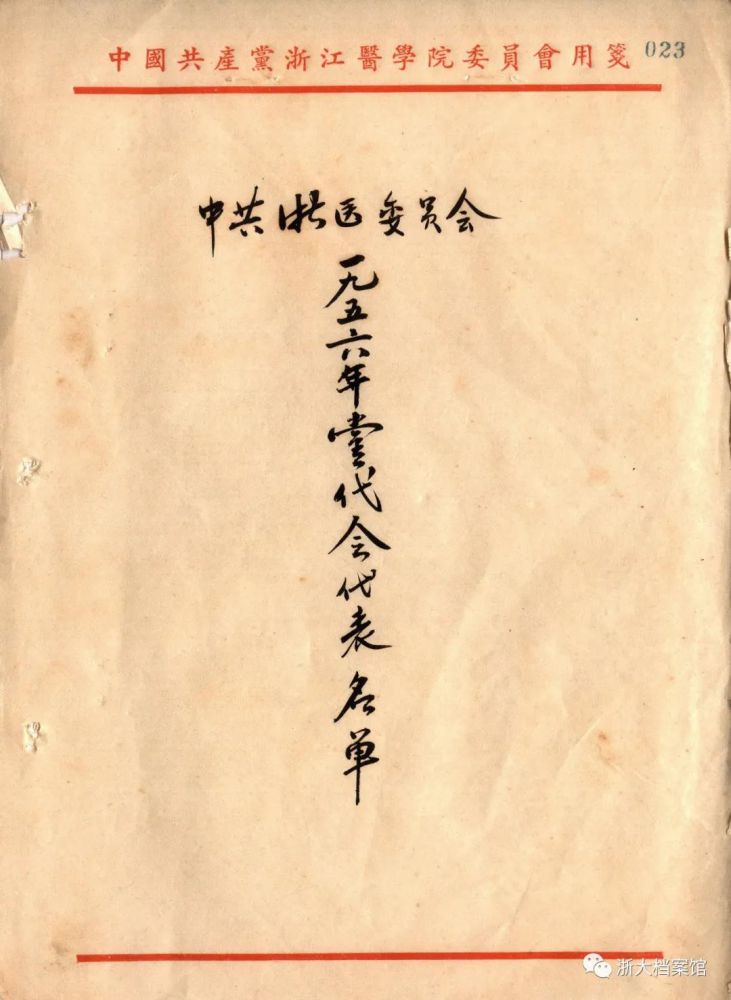 中國共產黨浙江醫學院委員會用箋 023
中共浙医委员会
一九五六年党代会代表名单
浙大档案馆